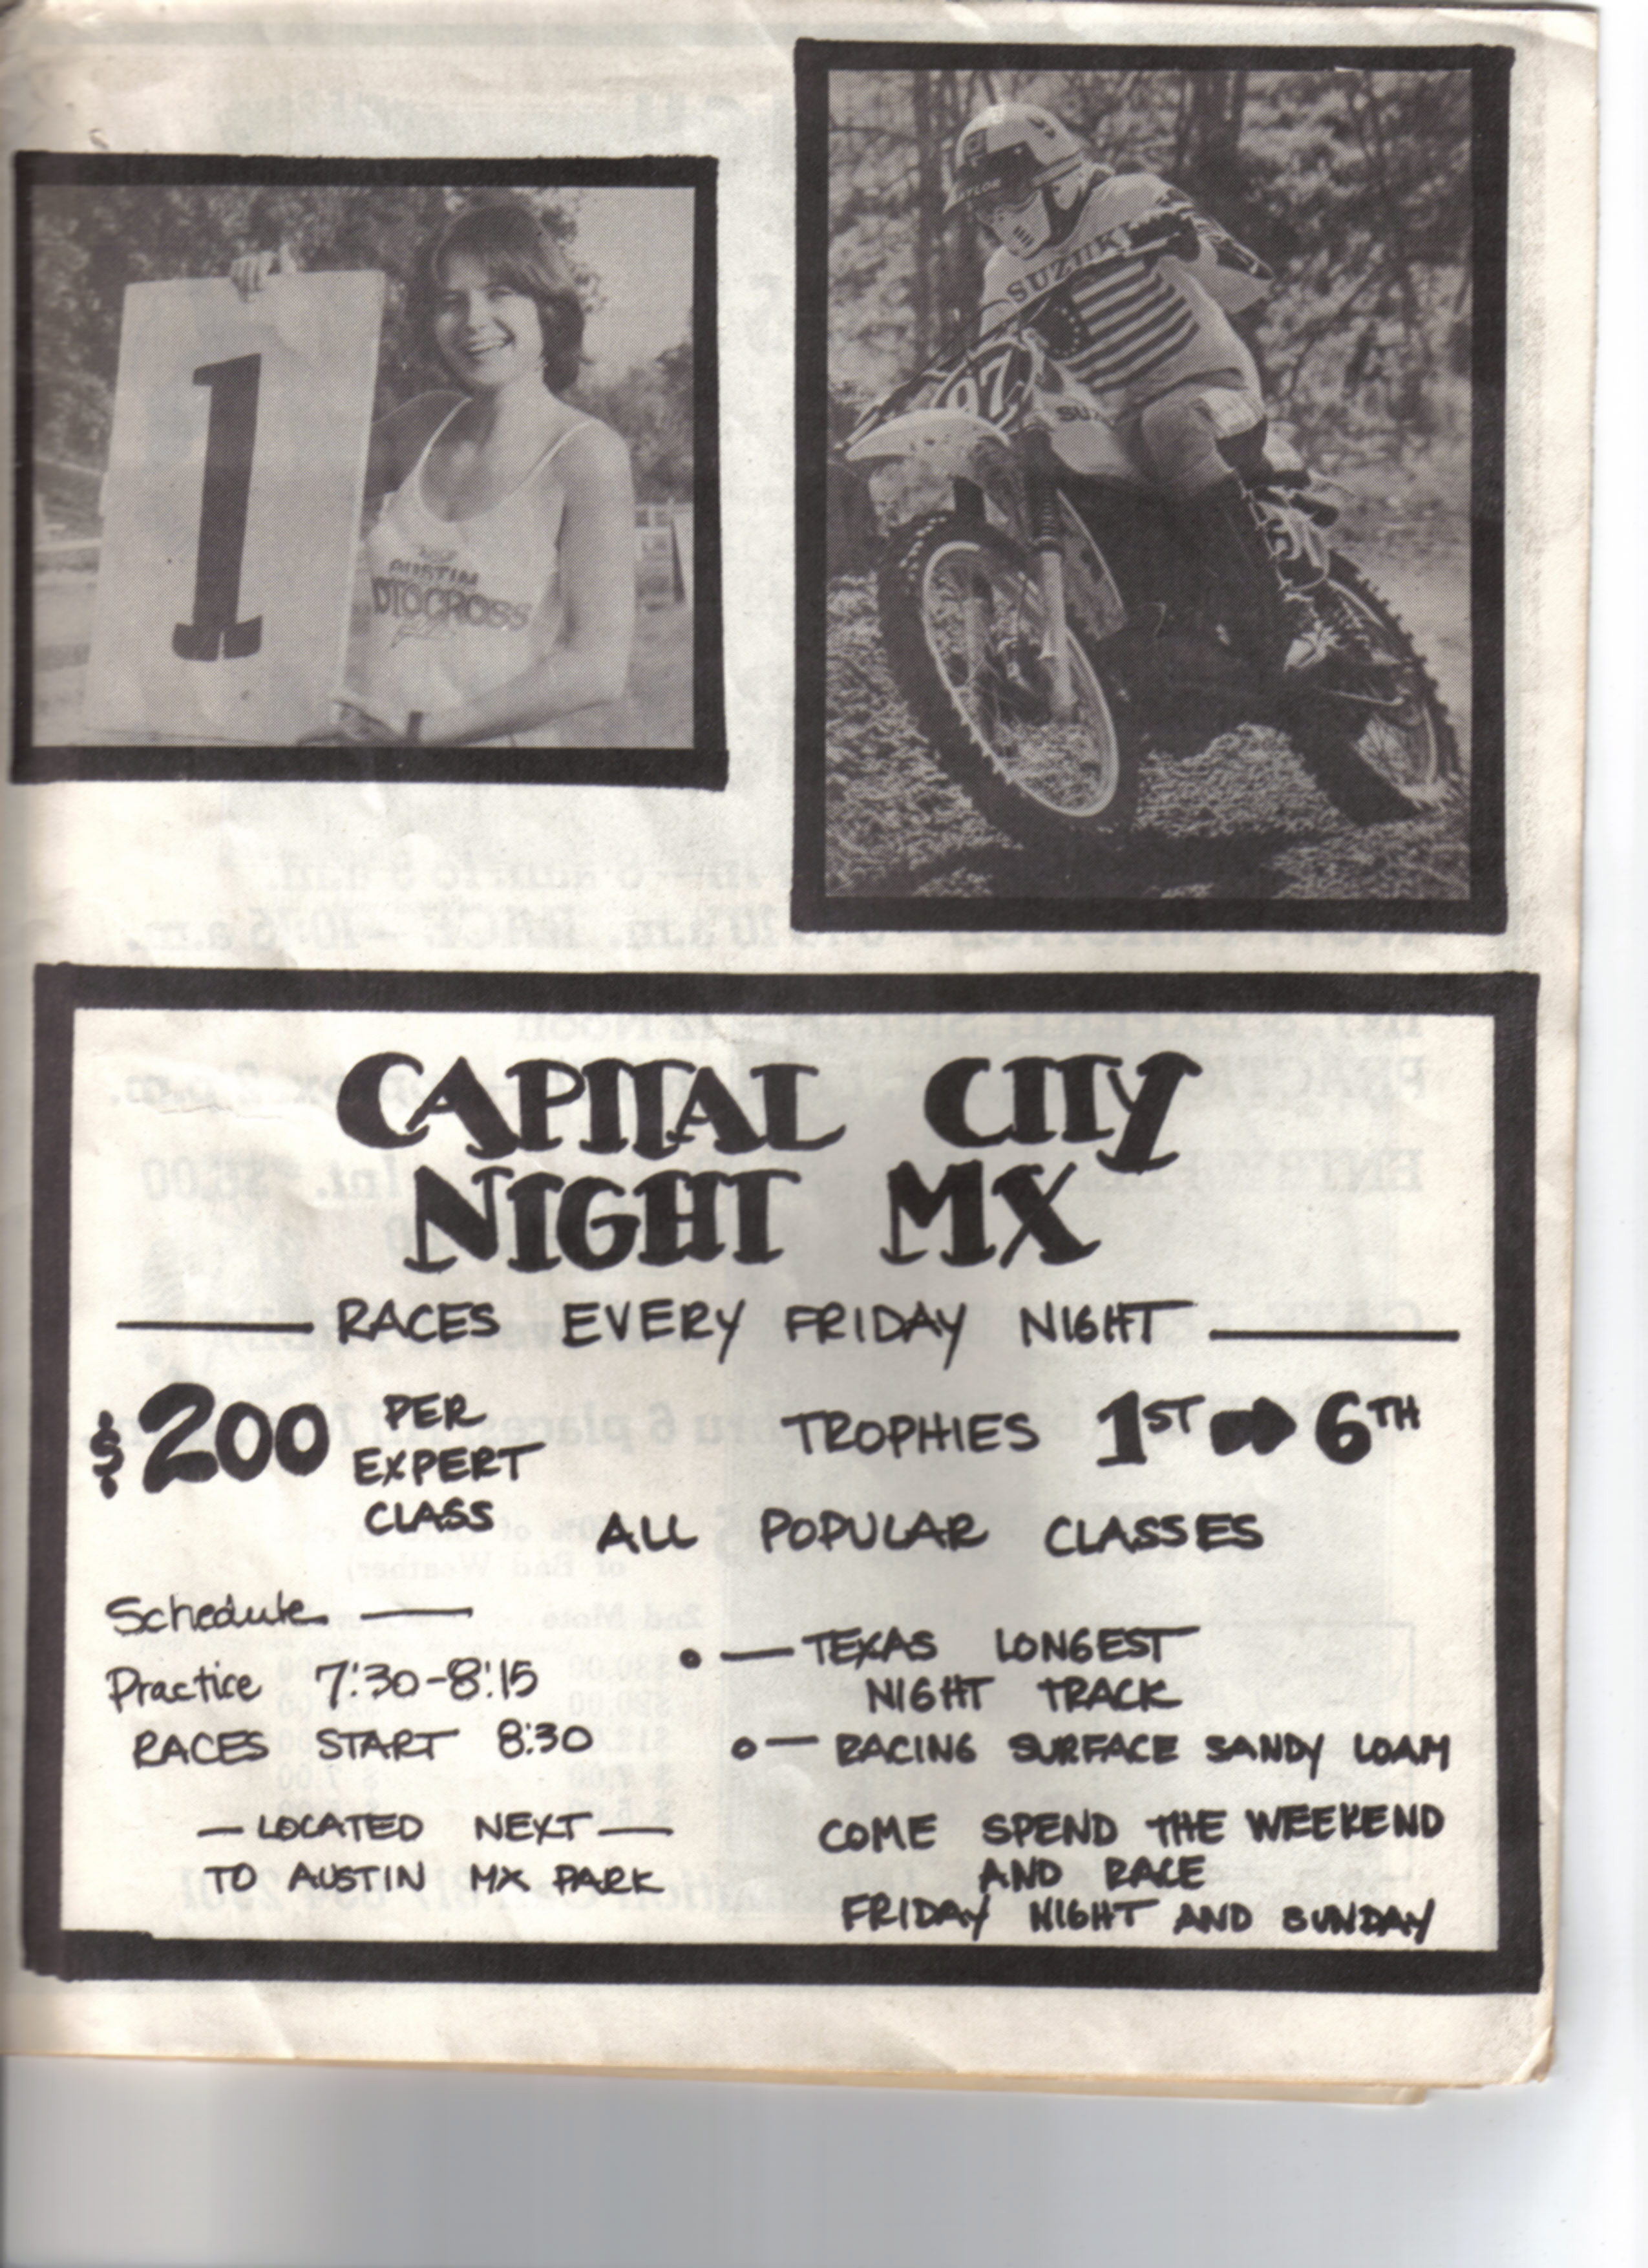 1
AUSTIN
SUZUKI
CAPITAL CITY
NIGHT MX
RACES EVERY FRIDAY NIGHT
$200 PER
EXPERT
CLASS
TROPHIES 1ST 6TH
ALL POPULAR CLASSES
Schedule
Practice 7:30-8:15
RACES START 8:30
- LOCATED NEXT -
TO AUSTIN MX PARK
TEXAS LONGEST
NIGHT TRACK
RACING SURFACE SANDY LOAM
COME SPEND THE WEEKEND
AND RACE
FRIDAY NIGHT AND SUNDAY